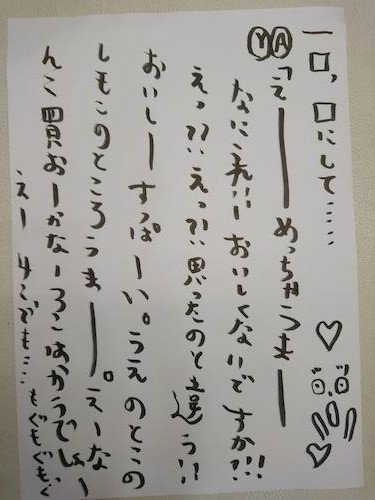 一口，口にして……
ⓎⒶ「えーーーめっちゃうまー
なにこれ!!おいしくないですか!!!
えっ!?えっ!?思ったのと違う!!
おいしーすっぱーい。うえのとこの
しもこのところうまー。えーな
んこ買おーかなー3こはかうでしょー
えー4こでも…もぐもぐもぐ